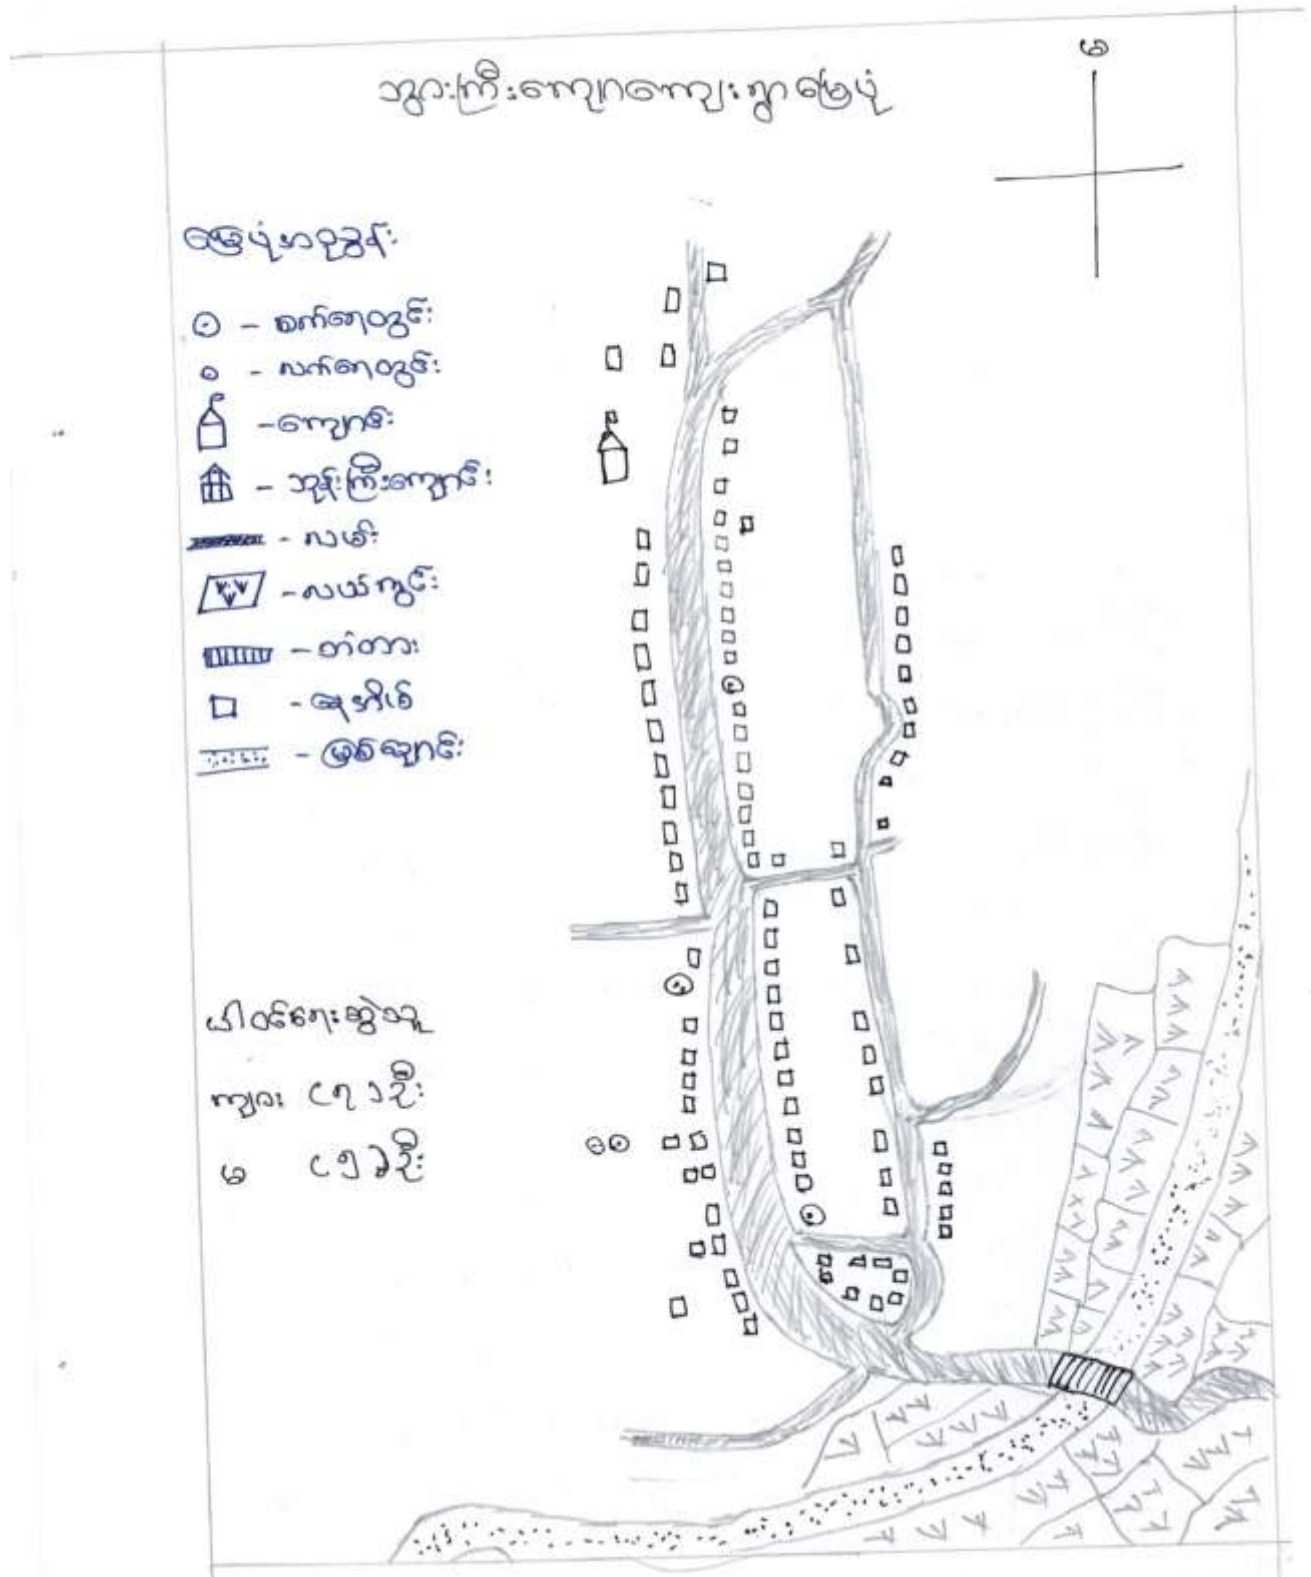 ဘွားကြီးကျောကျေးရွာမြေပုံ
မ
မြေပုံအညွှန်း
- စက်ရေတွင်း
- လက်ရေတွင်း
- ကျောင်း
- ဘုန်းကြီးကျောင်း
- လမ်း
- လယ်ကွင်း
- တံတား
- နေအိမ်
- မြစ်ချောင်း
ပါဝင်ရေးဆွဲသူ
ကျား
မ